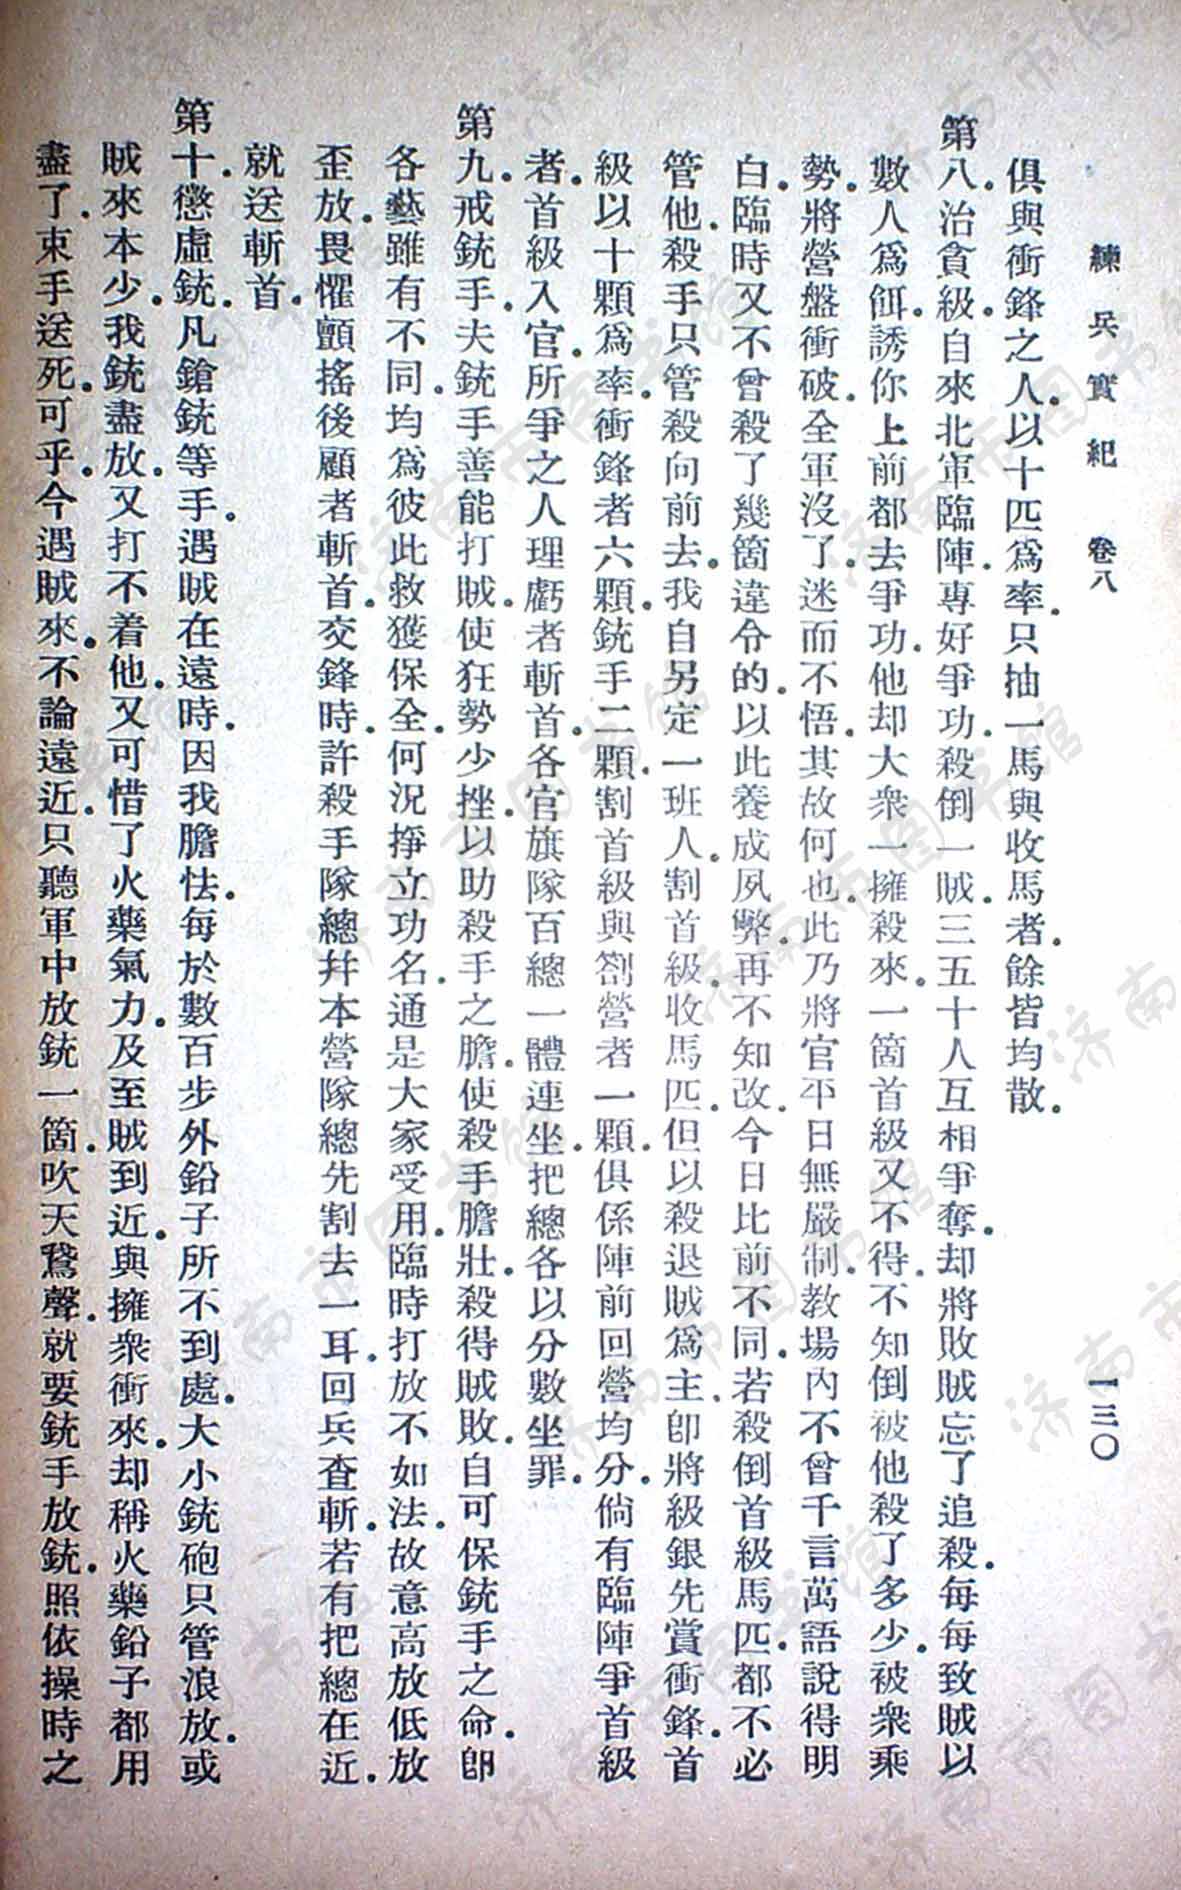 練兵實紀 卷八 一三〇
俱與衝鋒之人以十匹爲率只抽一馬與收馬者餘皆均散
第八治貪級自來北軍臨陣專好爭功殺倒一賊三五十人互相爭奪却將敗賊忘了追殺每每致賊以
數人爲餌誘你上前都去爭功他却大衆一擁殺來一箇首級又不得不知倒被他殺了多少被衆乘
勢將營盤衝破全軍沒了迷而不悟其故何也此乃將官平日無嚴制教場內不曾千言萬語說得明
白臨時又不曾殺了幾箇違令的以此養成夙弊再不知改今日比前不同若殺倒首級馬匹都不必
管他殺手只管殺向前去我自另定一班人割首級收馬匹但以殺退賊爲主卽將級銀先賞衝鋒首
級以十顆爲率衝鋒者六顆銃手二顆割首級與劄營者一顆俱係陣前回營均分倘有臨陣爭首級
者首級入官所爭之人理虧者斬首各官旗隊百總一體連坐把總各以分數坐罪
第九戒銃手夫銃手善能打賊使狂勢少挫以助殺手之膽使殺手膽壯殺得賊敗自可保銃手之命卽
各藝雖有不同均爲彼此救獲保全何況掙立功名通是大家受用臨時打放不如法故意高放低放
歪放畏懼顫搖後顧者斬首交鋒時許殺手隊總幷本營隊總先割去一耳回兵查斬若有把總在近
就送斬首
第十懲虛銃凡鎗銃等手遇賊在遠時因我膽怯每於數百步外鉛子所不到處大小銃砲只管浪放或
賊來本少我銃盡放又打不着他又可惜了火藥氣力及至賊到近與擁衆衝來却稱火藥鉛子都用
盡了束手送死可乎今遇賊來不論遠近只聽軍中放銃一箇吹天鵞聲就要銃手放銃照依操時之
济南市图书馆